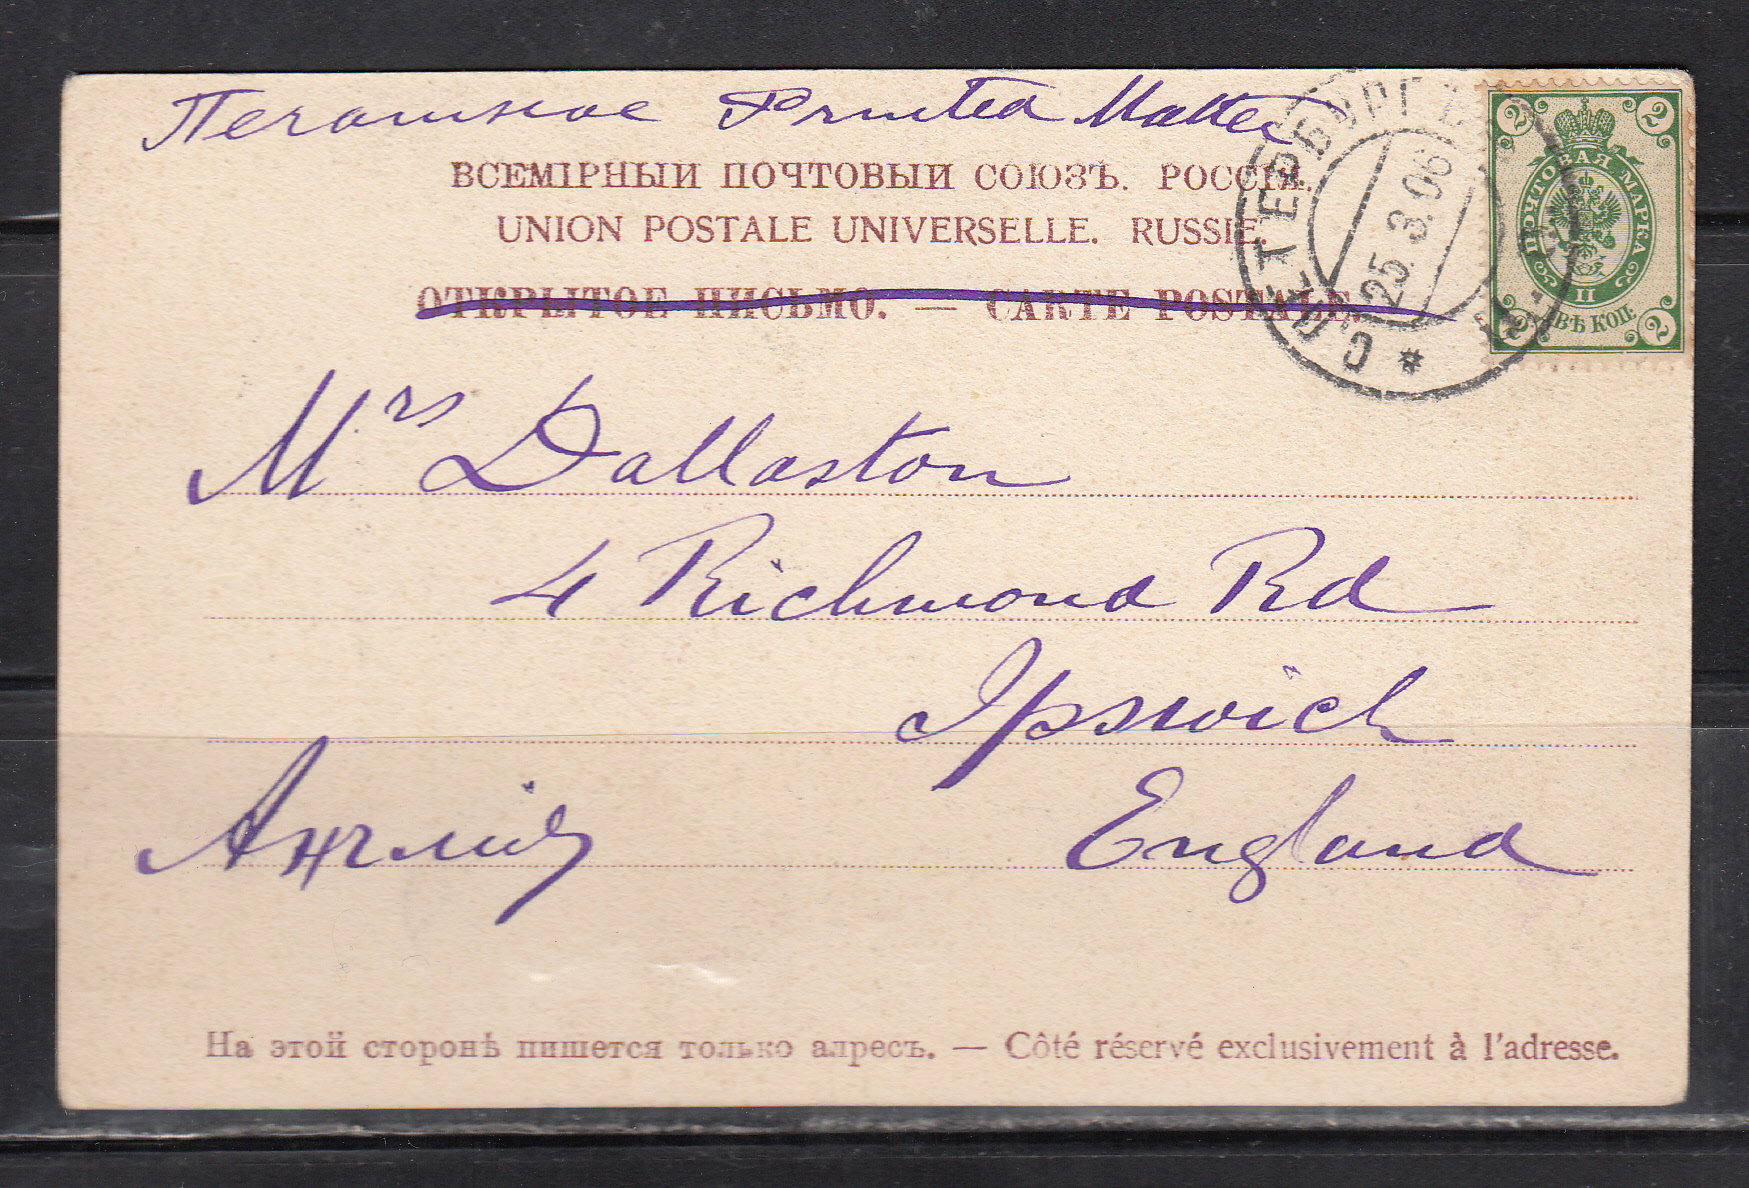 Печатное Printed Matter
ВСЕМІРНЫЙ ПОЧТОВЫЙ СОЮЗЪ. РОССІЯ.
UNION POSTALE UNIVERSELLE. RUSSIE.
ОТКРЫТОЕ ПИСЬМО. — CARTE POSTALE.
С.ПЕТЕРБУРГЪ
25.3.06
2 2
ПОЧТОВАЯ МАРКА
II
ДВѢ КОП.
2 2
Mrs Dallaston
4 Richmond Rd
Ipswich
Англія England
На этой сторонѣ пишется только адресъ. — Côté réservé exclusivement à l'adresse.